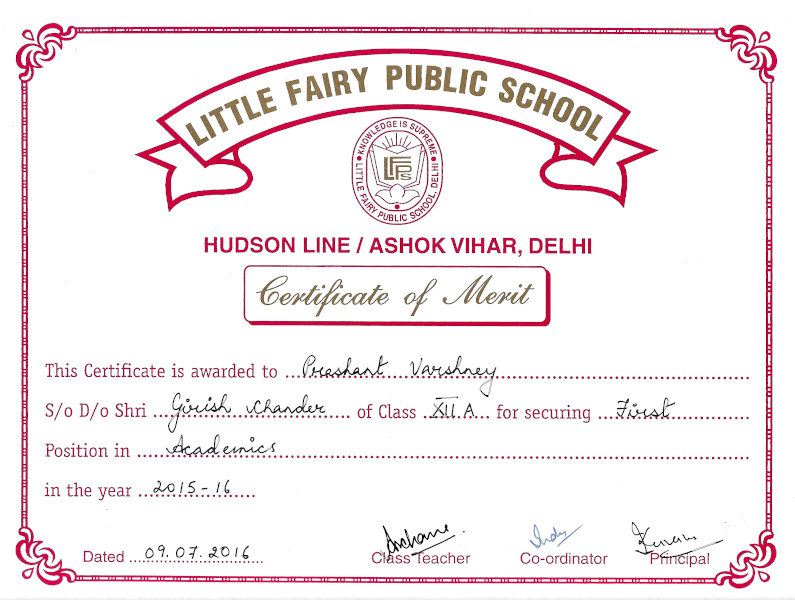 LITTLE FAIRY PUBLIC SCHOOL
KNOWLEDGE IS SUPREME
LFPS
LITTLE FAIRY PUBLIC SCHOOL, DELHI
HUDSON LINE / ASHOK VIHAR, DELHI
Certificate of Merit
This Certificate is awarded to Prashant Varshney
S/o D/o Shri Girish Chander of Class XII A for securing First
Position in Academics
in the year 2015-16
Dated 09.07.2016 Class Teacher Co-ordinator Principal